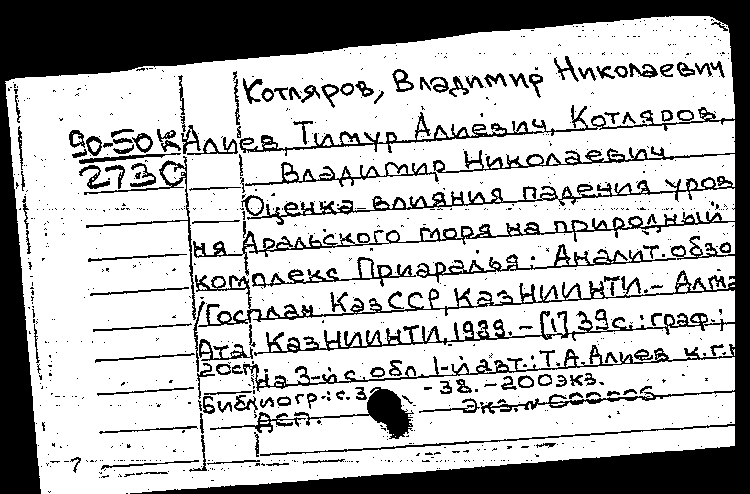 Котляров, Владимир Николаевич
90-50К Алиев, Тимур Алиевич, Котляров,
2730 Владимир Николаевич.
Оценка влияния падения уров
ня Аральского моря на природный
комплекс Приаралья: Аналит. обзо
/Госплан КазССР, КазНИИНТИ. - Алма
Ата: КазНИИНТИ, 1989. - [1], 39 с.: граф.;
20 см
На 3-й с. обл. 1-й авт.: Т.А. Алиев к.г.н
Библиогр.: с. - 38. - 200 экз.
ДСП. Экз. N 000006.